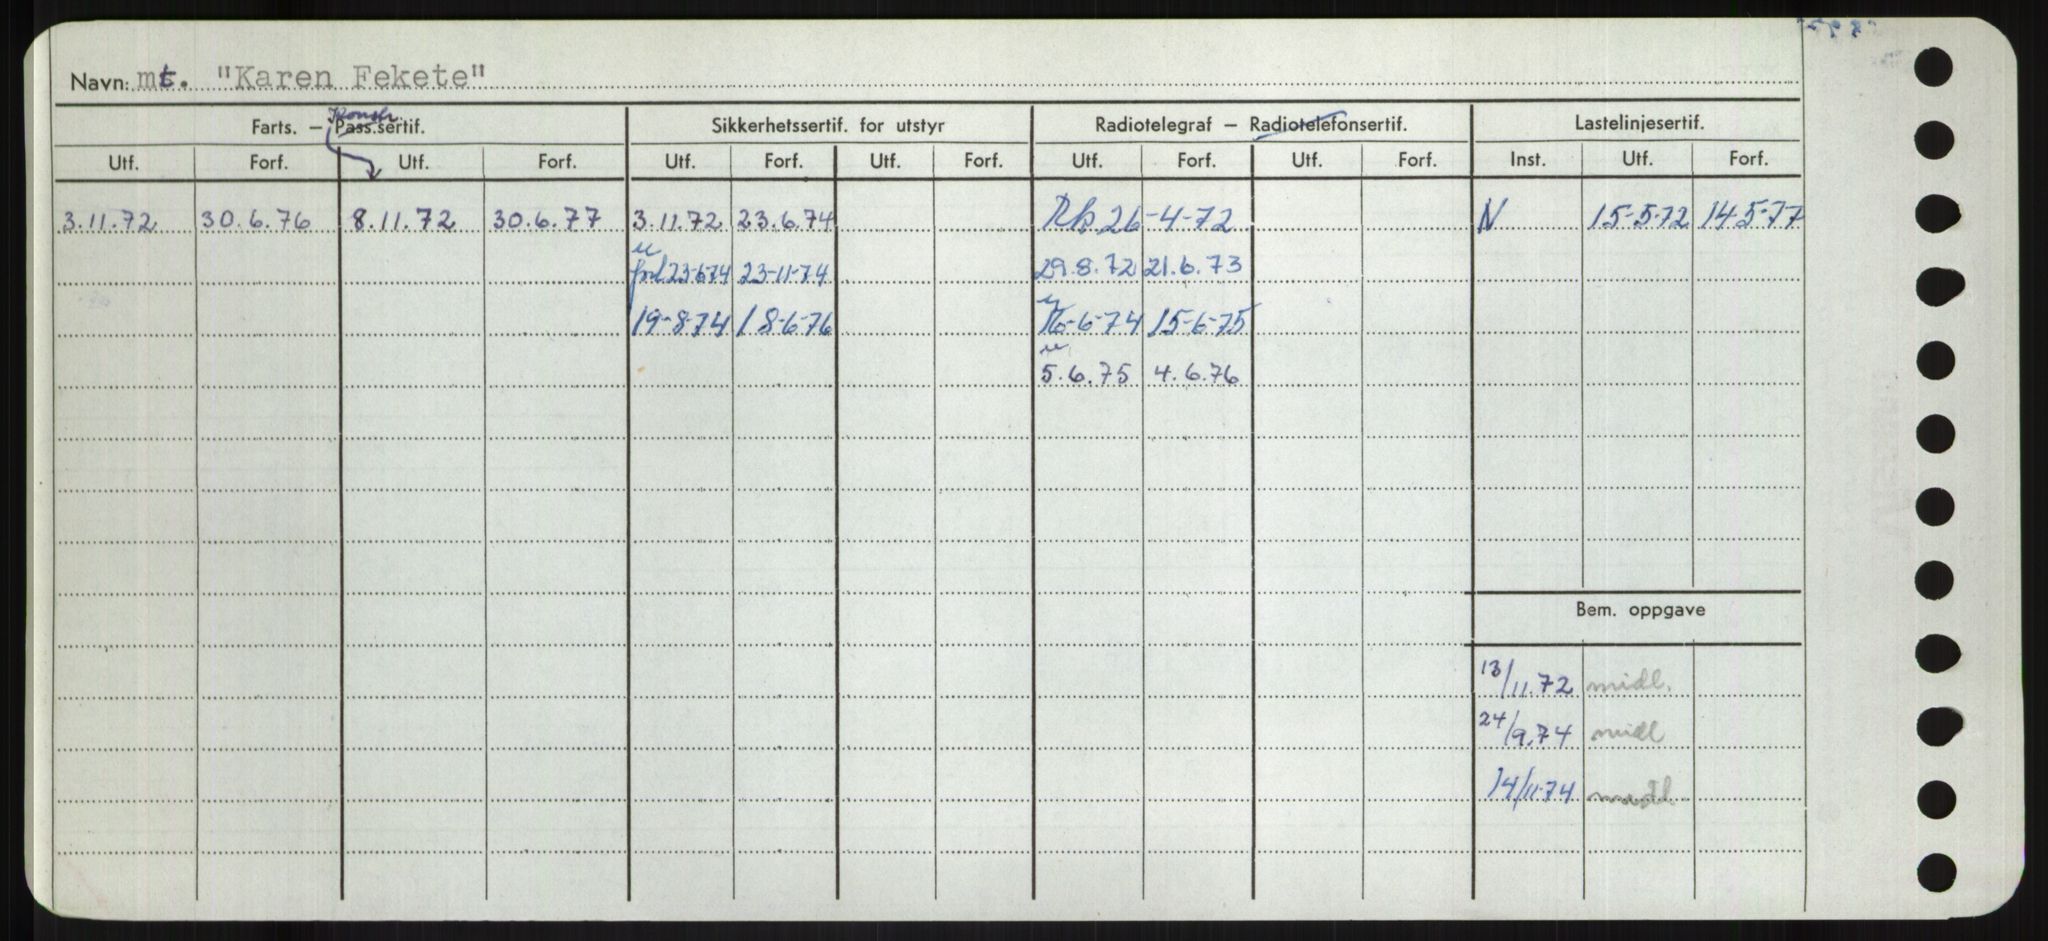 Navn: mt. "Karen Fekete"
Konstr.
Farts. – Pass.sertif. Sikkerhetssertif. for utstyr Radiotelegraf – Radiotelefonsertif. Lastelinjesertif.
Utf. Forf. Utf. Forf. Utf. Forf. Utf. Forf. Utf. Forf. Utf. Forf. Inst. Utf. Forf.
3.11.72 30.6.76 8.11.72 30.6.77 3.11.72 23.6.74 Rk. 26-4-72 N 15-5-72 14-5-77
u
forl 23-6-74 23-11-74 29.8.72 21.6.73
u
19-8-74 18-6-76 16-6-74 15-6-75
u
5.6.75 4.6.76
Bem. oppgave
13/11.72 midl.
24/9.74 midl
14/11-74 midl.